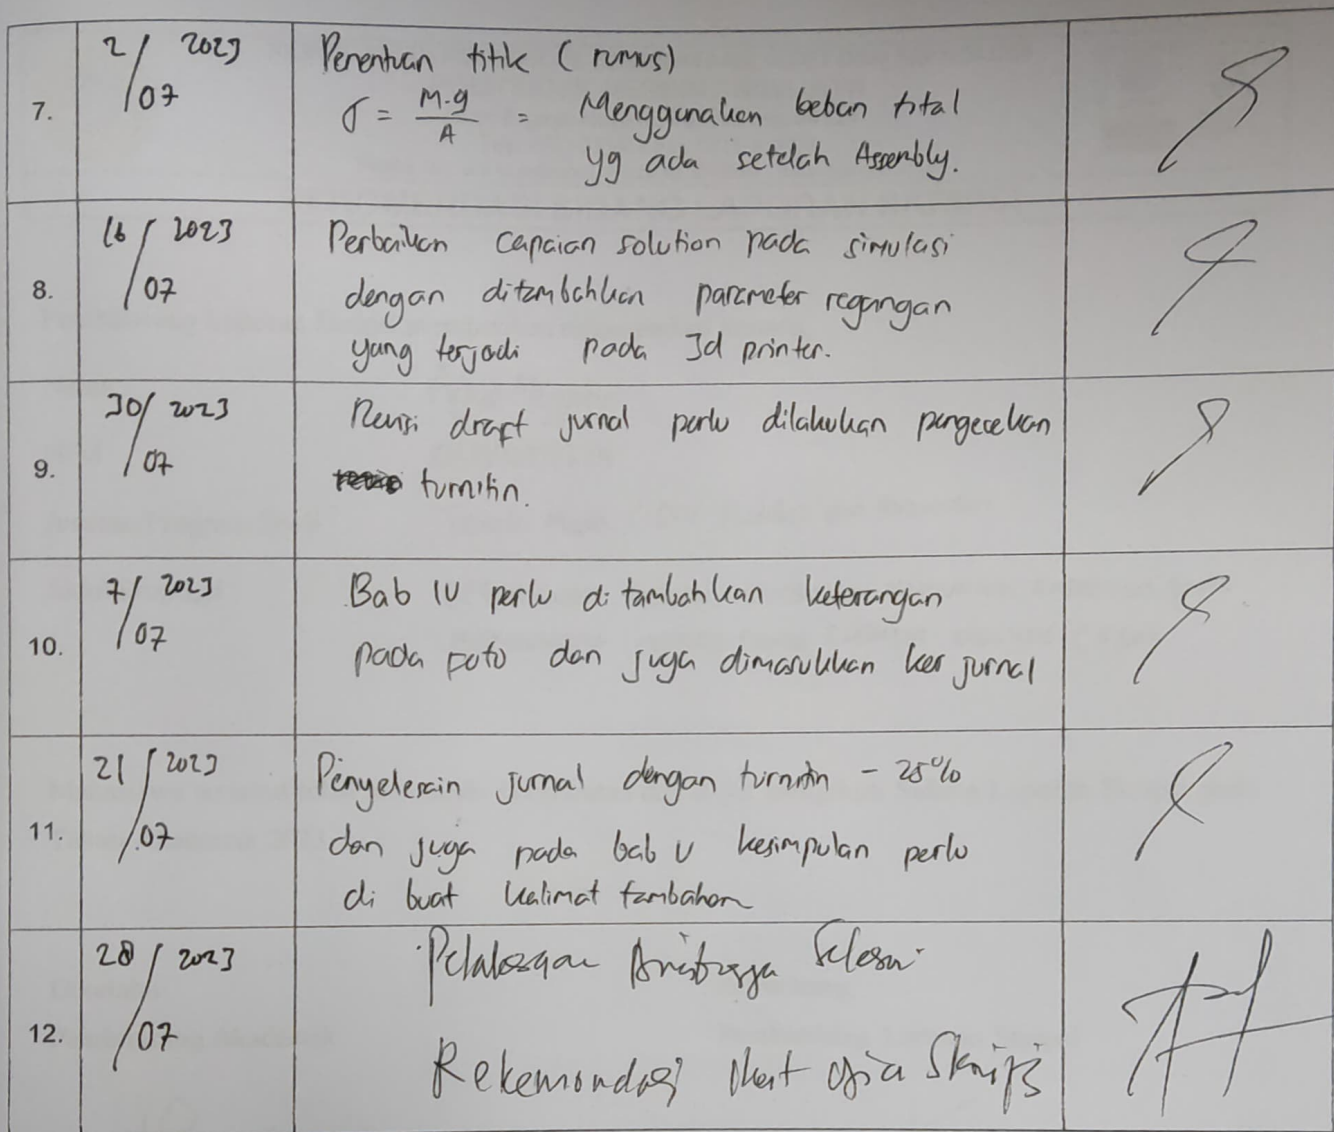 7.
2/07 2023
Penentuan titik (rumus)
σ = M.g/A = Menggunakan beban total
yg ada setelah Assembly.
8.
16/07 2023
Perbaikan capaian solution pada simulasi
dengan ditambahkan parameter regangan
yang terjadi pada 3d printer.
9.
30/07 2023
Revisi draft jurnal perlu dilakukan pengecekan
turnitin.
10.
7/07 2023
Bab IV perlu di tambahkan keterangan
pada foto dan juga dimasukkan ker jurnal
11.
21/07 2023
Penyelesain jurnal dengan turnitin - 25%
dan juga pada bab V kesimpulan perlu
di buat kalimat tambahan
12.
28/07 2023
Selesai
Rekomendasi Skripsi